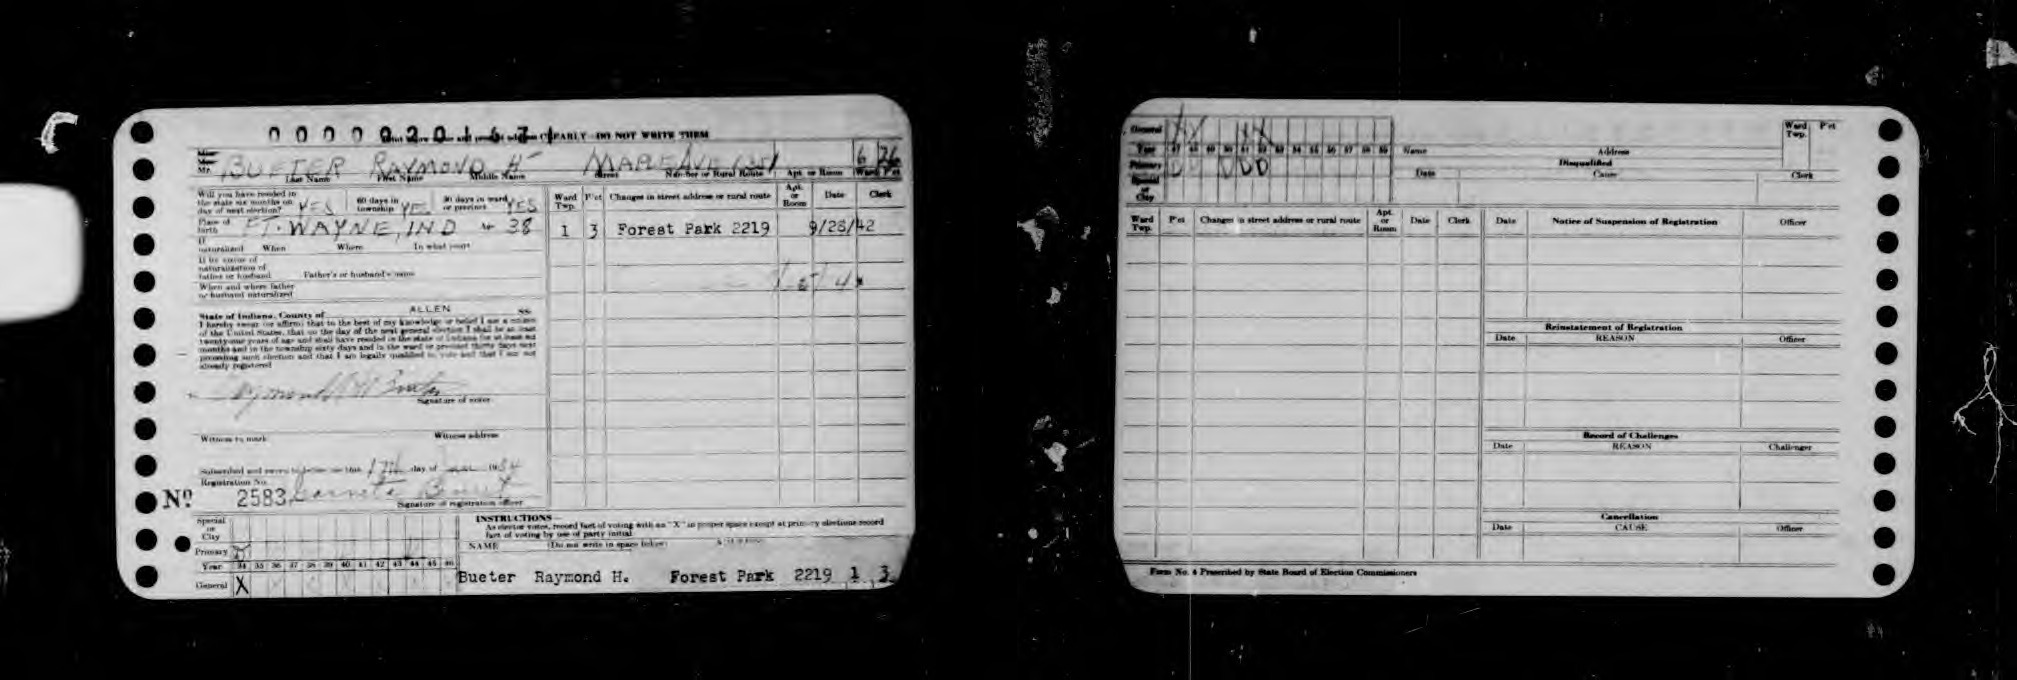 CLEARLY—DO NOT WRITE THEM
Mr. BUETER RAYMOND H MAPLE AVE 6 26
Last Name First Name Middle Name Street Number or Rural Route Apt. or Room Ward P'ct
Will you have resided in the state six months on day of next election? YES 60 days in township YES 30 days in ward or precinct YES
Place of birth FT. WAYNE, IND Age 38
If naturalized When Where In what court
If by virtue of naturalization of father or husband Father's or husband's name
When and where father or husband naturalized
State of Indiana, County of ALLEN SS.
I hereby swear (or affirm) that to the best of my knowledge or belief I am a citizen
of the United States, that on the day of the next general election I shall be at least
twenty-one years of age and shall have resided in the state of Indiana for at least six
months and in the township sixty days and in the ward or precinct thirty days next
preceding such election and that I am legally qualified to vote and that I am not
already registered
Raymond H Bueter
Signature of voter
Witness to mark Witness address
Subscribed and sworn to before me this 17th day of 1934
Registration No.
No 2583
Signature of registration officer
Ward Twp. P'ct Changes in street address or rural route Apt. or Room Date Clerk
1 3 Forest Park 2219 9/28/42
Special or City
Primary D
Year 34 35 36 37 38 39 40 41 42 43 44 45 46
General X
INSTRUCTIONS—
As elector votes, record fact of voting with an "X" in proper space except at primary elections record
fact of voting by use of party initial
NAME (Do not write in space below) ADDRESS
Bueter Raymond H. Forest Park 2219 1 3
General X X X X
Year 47 48 49 50 51 52 53 54 55 56 57 58 59
Primary D D D D D
Special or City
Name Address Ward Twp. P'ct
Disqualified
Date Cause Clerk
Ward Twp. P'ct Changes in street address or rural route Apt. or Room Date Clerk
Date Notice of Suspension of Registration Officer
Reinstatement of Registration
Date REASON Officer
Record of Challenges
Date REASON Challenger
Cancellation
Date CAUSE Officer
Form No. 4 Prescribed by State Board of Election Commissioners